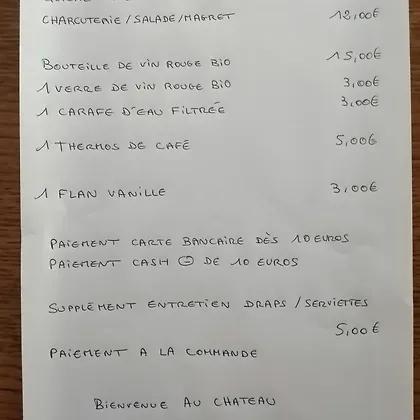 CHARCUTERIE/SALADE/MAGRET 12,00€
BOUTEILLE DE VIN ROUGE BIO 15,00€
1 VERRE DE VIN ROUGE BIO 3,00€
1 CARAFE D'EAU FILTRÉE 3,00€
1 THERMOS DE CAFÉ 5,00€
1 FLAN VANILLE 3,00€
PAIEMENT CARTE BANCAIRE DÈS 10 EUROS
PAIEMENT CASH ⊖ DE 10 EUROS
SUPPLÉMENT ENTRETIEN DRAPS/SERVIETTES
5,00€
PAIEMENT A LA COMMANDE
BIENVENUE AU CHATEAU